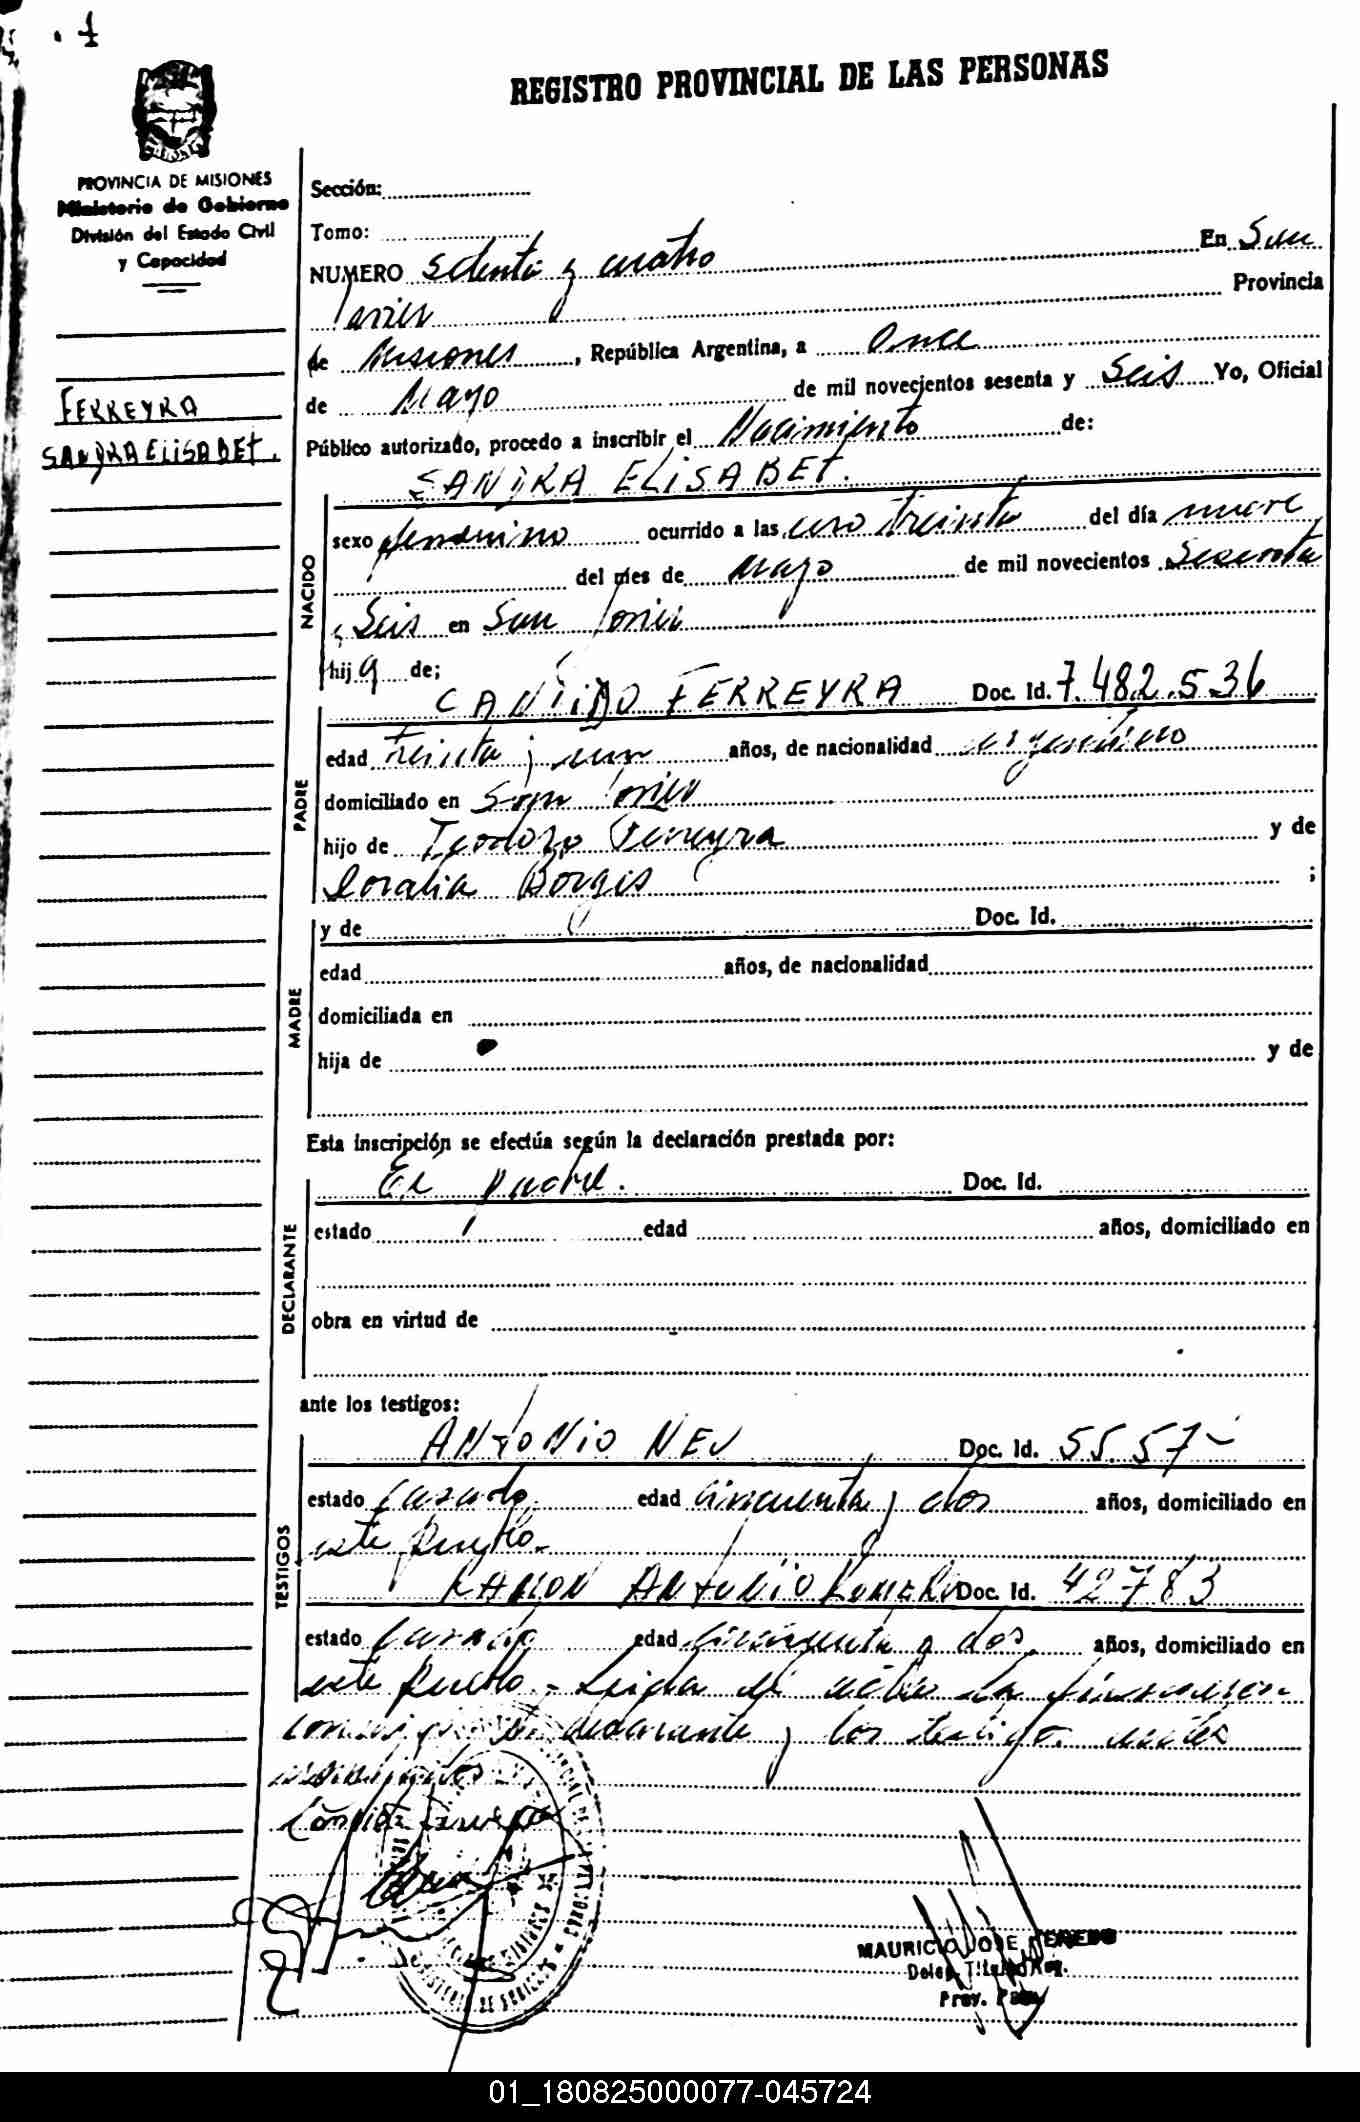 REGISTRO PROVINCIAL DE LAS PERSONAS
PROVINCIA DE MISIONES
Ministerio de Gobierno
División del Estado Civil
y Capacidad
FERREYRA
SANDRA ELISABET.
Sección:
Tomo:
NUMERO setenta y cuatro En San
Javier Provincia
de Misiones, República Argentina, a Once
de Mayo de mil novecientos sesenta y Seis Yo, Oficial
Público autorizado, procedo a inscribir el Nacimiento de:
SANDRA ELISABET.
NACIDO
sexo femenino ocurrido a las uno treinta del día nueve
del mes de mayo de mil novecientos Sesenta
y Seis en San Javier
hija de;
PADRE
CANDIDO FERREYRA Doc. Id. 7.482.536
edad treinta y un años, de nacionalidad argentino
domiciliado en San Javier
hijo de Teodoro Ferreyra y de
Coralia Borges ;
MADRE
y de Doc. Id.
edad años, de nacionalidad
domiciliada en
hija de y de
Esta inscripción se efectúa según la declaración prestada por:
DECLARANTE
El padre. Doc. Id.
estado edad años, domiciliado en
obra en virtud de
ante los testigos:
TESTIGOS
ANTONIO Doc. Id. 55.57
estado casado edad cincuenta y dos años, domiciliado en
este pueblo.
RAMON ANTONIO ROMERO Doc. Id. 42783
estado casado edad cincuenta y dos años, domiciliado en
este pueblo - Leida el acta la firmaron
conmigo el declarante y los testigos
MAURICIO JOSE
Deleg. Titular Reg.
Prov. Pers.
01_180825000077-045724